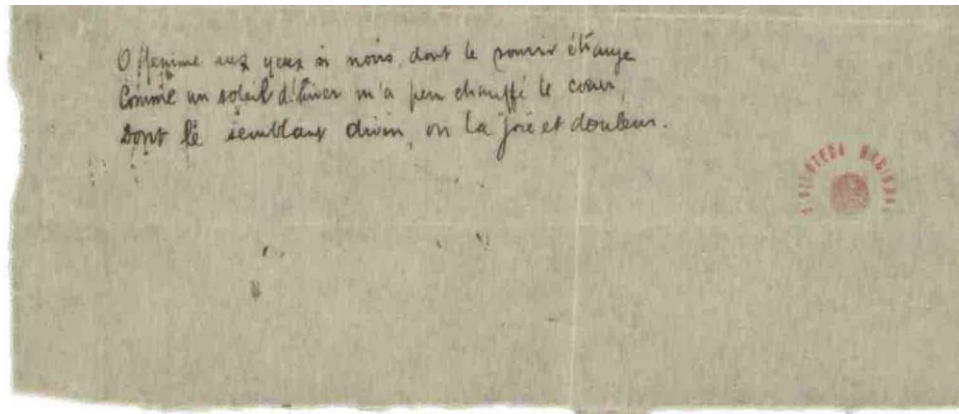 O femme aux yeux si noirs, dont le sourir étrange
Comme un soleil d'hiver m'a peu chauffé le cœur,
Dont le semblant divin, ou la joie et douleur.
BIBLIOTECA NACIONAL